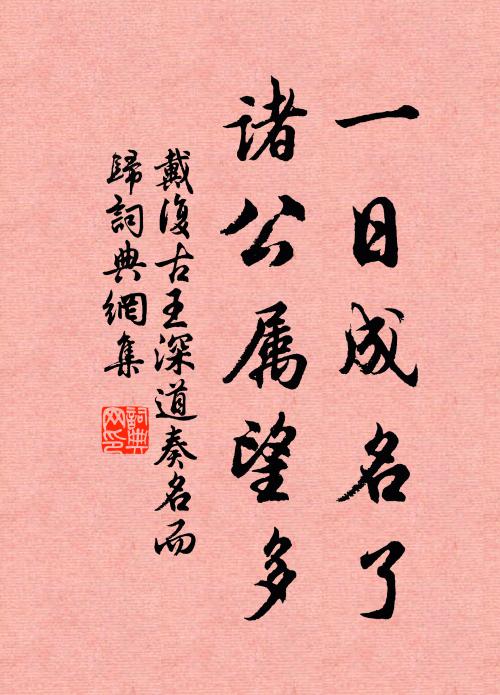 一日成名了
诸公属望多
戴復古王深道奏名而
歸詞典網集
詞典
网印